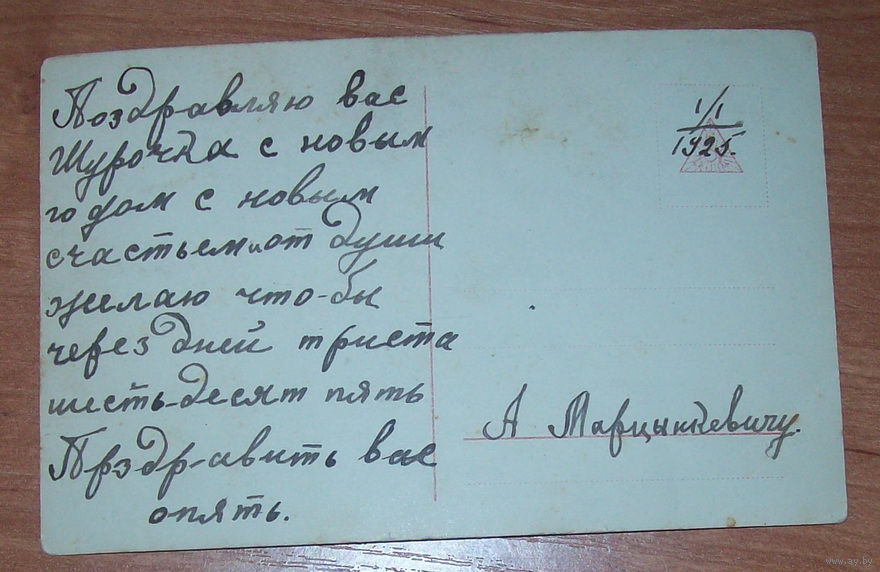 Поздравляю вас
Шурочка с новым
годом с новым
счастьем и от души
желаю что-бы
через дней триста
шесть-десят пять
Прздр-авить вас
опять.
1/1
1925.
А Марцынкевичу.
www.ay.by